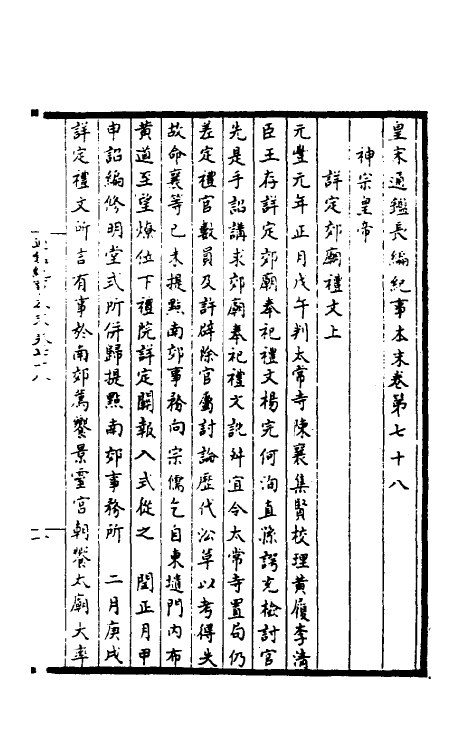 皇宋通鑑長編紀事本末卷第七十八
神宗皇帝
詳定郊廟禮文上
元豐元年正月戊午判太常寺陳襄集賢校理黃履李清
臣王存詳定郊廟奉祀禮文楊完何洵直孫諤充檢討官
先是手詔講求郊廟奉祀禮文訛舛宜令太常寺置局仍
差定禮官數員及許辟除官屬討論歷代沿革以考得失
故命襄等己未提點南郊事務向宗儒乞自東壝門內布
黃道至望燎位下禮院詳定關報入式從之 閏正月甲
申詔編修明堂式所併歸提點南郊事務所 二月庚戌
詳定禮文所言有事於南郊薦饗景靈宮朝饗太廟大率